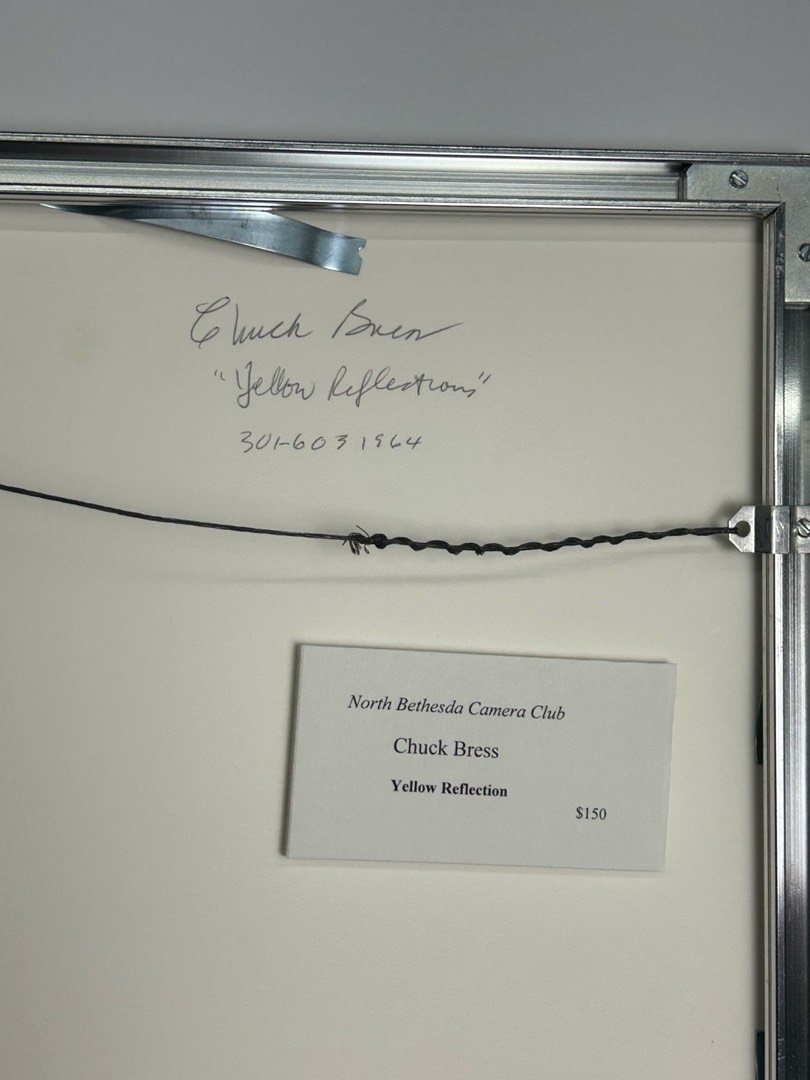 Chuck Bress
"Yellow Reflections"
301-603 1964
North Bethesda Camera Club
Chuck Bress
Yellow Reflection
$150